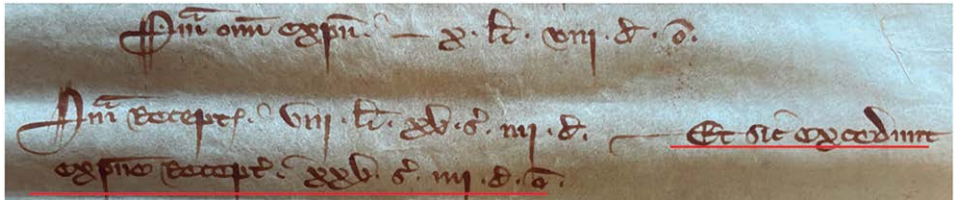 Sm̄a om̄ expn̄. — x. li. viij. d. o̅.
Sm̄a Recept. viij. li. xv. s. iiij. d. — Et sic excedunt
expn̄e Recept. xxv. s. iiij. d. o̅.